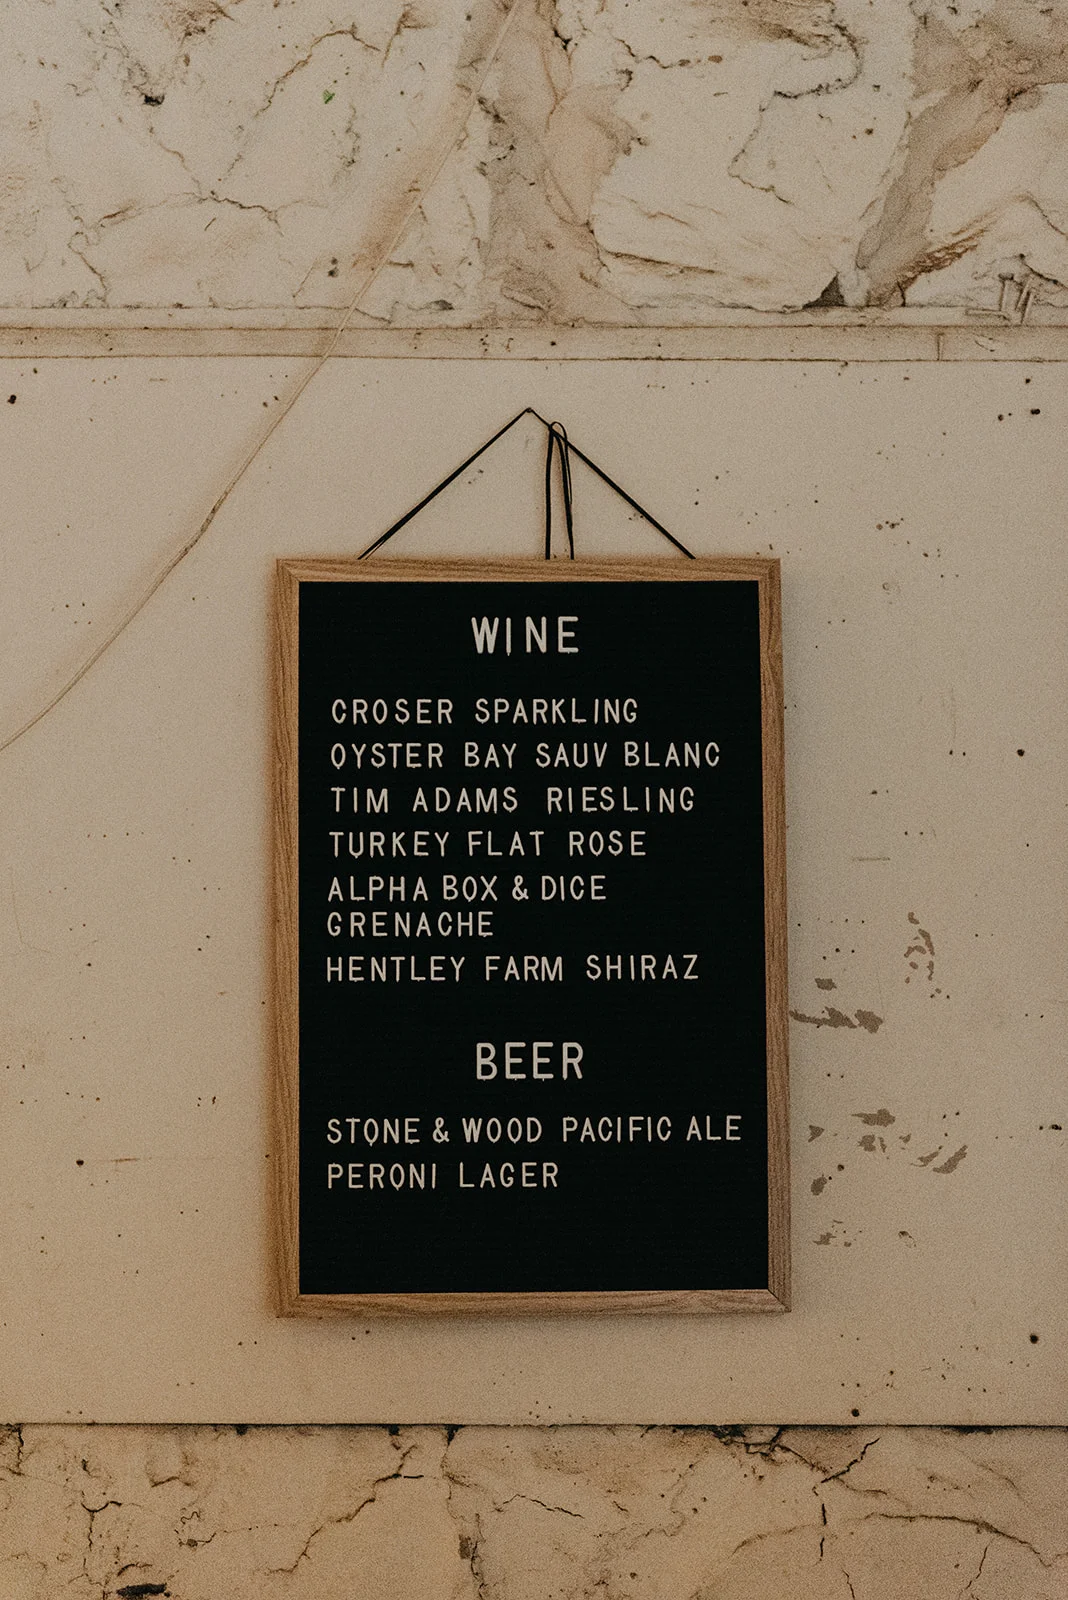 WINE
CROSER SPARKLING
OYSTER BAY SAUV BLANC
TIM ADAMS RIESLING
TURKEY FLAT ROSE
ALPHA BOX & DICE
GRENACHE
HENTLEY FARM SHIRAZ
BEER
STONE & WOOD PACIFIC ALE
PERONI LAGER